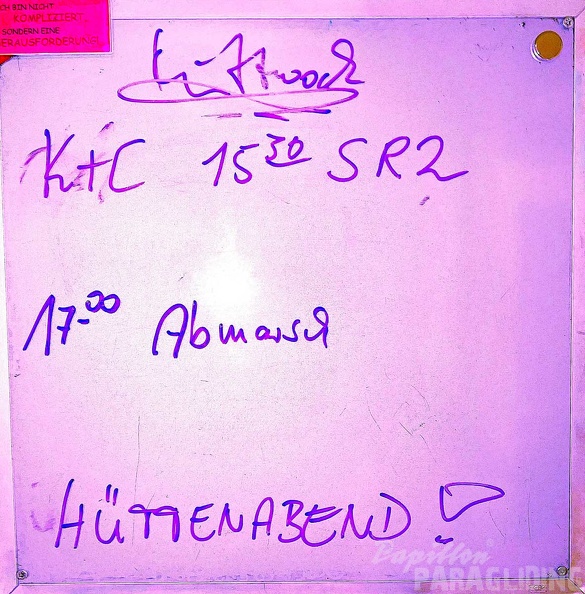 ICH BIN NICHT
KOMPLIZIERT,
SONDERN EINE
HERAUSFORDERUNG!
Mittwoch
K+C 15³⁰ SR2
17-⁰⁰ Abmarsch
HÜTTENABEND !
Papillon
PARAGLIDING